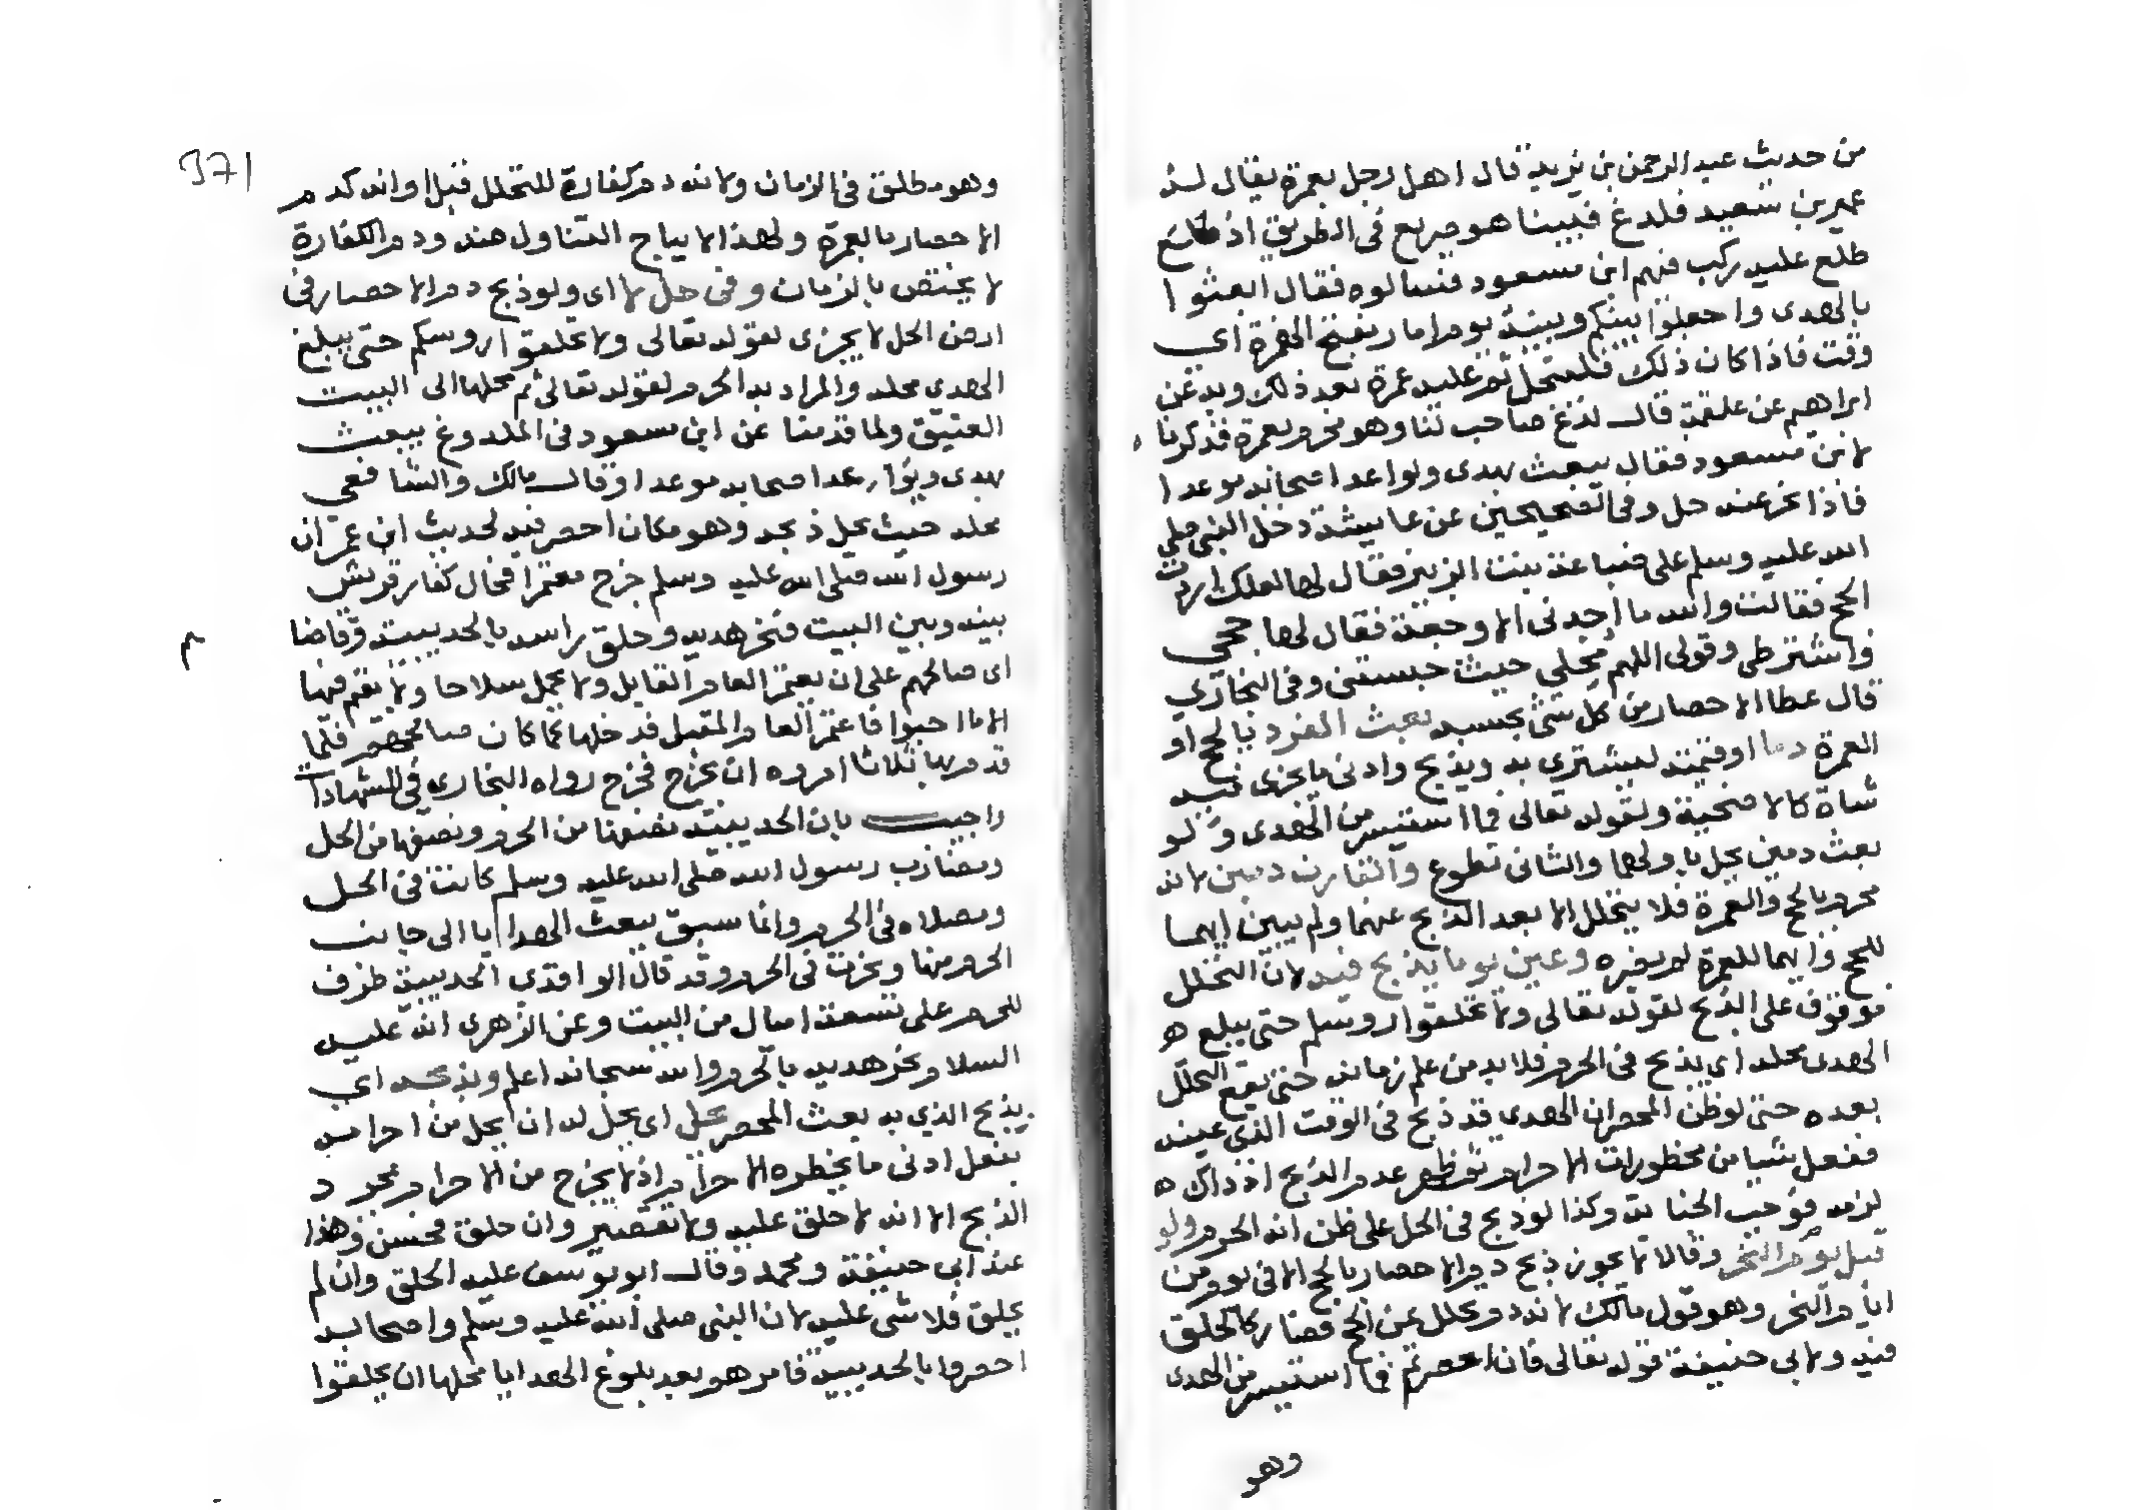 من حديث عبد الرحمن بن يزيد قال اهل رجل بعمرة يقال له
عمير بن سعيد فلدغ فبينا هو صريع فى الطريق اذ طلع
طلع عليه ركب فيهم ابن مسعود فسالوه فقال ابعثوا
بالهدى واجعلوا بينكم وبينه يوم امار بفتح الهمزة اي
وقت فاذا كان ذلك فليتحلل ثم عليه عمرة بعد ذلك وبه عن
ابراهيم عن علقمة قال لدغ صاحب لنا وهو محرم بعمرة فذكرنا ه
لابن مسعود فقال يبعث بهدى ويواعد اصحابه موعدا
فاذا نحر عنه حل وفى الصحيحين عن عايشة دخل النبى صلى
الله عليه وسلم على ضباعة بنت الزبير فقال لها لعلك اردت
الحج فقالت والله ما اجدنى الا وجعة فقال لها حجي
واشترطى وقولى اللهم محلي حيث حبستنى وفى البخارى
قال عطا الاحصار من كل شئ بحسبه بعث المفرد بالحج او
العمرة دما او قيمته ليشترى به ويذبح وادنى ما يجزى فيه
شاة كالاضحية ولقوله تعالى فما استيسر من الهدى ولو
بعث دمين يحل باولهما والثانى تطوع والقارن دمين لانه
محرم بالحج والعمرة فلا يتحلل الا بعد الذبح عنهما ولم يبين ايهما
للحج وايهما للعمرة لم يضره وعين يوما يذبح فيه لان التحلل
موقوف على الذبح لقوله تعالى ولا تحلقوا روسكم حتى يبلغ ه
الهدى محله اي يذبح فى الحرم فلا بد من علم زمانه حتى يقع التحلل
بعده حتى لو ظن المحصر ان الهدى قد ذبح فى الوقت الذى عينه
ففعل شيا من محظورات الاحرام ثم ظهر عدم الذبح اذ ذاك ه
لزمه موجب الجناية وكذا لو ذبح فى الحل على ظن انه الحرم ولو
قبل يوم النحر وقالا لا يجوز ذبح دم الاحصار بالحج الا فى يوم من
ايام النحر وهو قول مالك لانه دم تحلل عن الحج فصار كالحلق
فيه ولابى حنيفة قوله تعالى فان احصرتم فما استيسر من الهدى
وهو
371
وهو مطلق فى الزمان ولانه دم كفارة للتحلل قبل اوانه كدم
الاحصار بالعمرة ولهذا لا يباح التناول منه ودم الكفارة
لا يختص بالزمان وفى حل لا اى ولو ذبح دم الاحصار فى
ارض الحل لا يجزى لقوله تعالى ولا تحلقوا روسكم حتى يبلغ
الهدى محله والمراد به الحرم لقوله تعالى ثم محلها الى البيت
العتيق ولما قدمنا عن ابن مسعود فى الملدوغ يبعث
بهدى ويواعد اصحابه موعدا وقال مالك والشافعي
محله حيث يحل ذبحه وهو مكان احصر فيه لحديث ابن عمر ان
رسول الله صلى الله عليه وسلم خرج معتمرا فحال كفار قريش
بينه وبين البيت فنحر هديه وحلق راسه بالحديبية وقاضا
م
اى صالحهم على ان يعتمر العام القابل ولا يحمل سلاحا ولا يقم فيها
الا ما احبوا فاعتمر العام المقبل فدخلها كما كان صالحهم فلما
قدم بها ثلاثا امروه ان يخرج فخرج رواه البخارى فى الشهادات
واجيب بان الحديبية بعضها من الحرم وبعضها من الحل
ومضارب رسول الله صلى الله عليه وسلم كانت فى الحل
ومصلاه فى الحرم وانما سبق يبعث الهدايا الى جانب
الحرم منها ونحرت فى الحرم وقد قال الواقدى الحديبية طرف
للحرم على تسعة اميال من البيت وعن الزهرى انه عليه
السلام نحر هديه بالحرم والله سبحانه اعلم وبذبحه اي
يذبح الذي به يعث المحصر يحل اى يحل له ان يحل من احرامه
بفعل ادنى ما يخطره الاحرام اذ لا يخرج من الاحرام بمجرد
الذبح الا انه لا حلق عليه ولا تقصير وان حلق فحسن وهذا
عند ابي حنيفة ومحمد وقال ابو يوسف عليه الحلق وان لم
يحلق فلا شى عليه لان النبى صلى الله عليه وسلم واصحابه
احصروا بالحديبية فامرهم بعد بلوغ الهدايا محلها ان يحلقوا